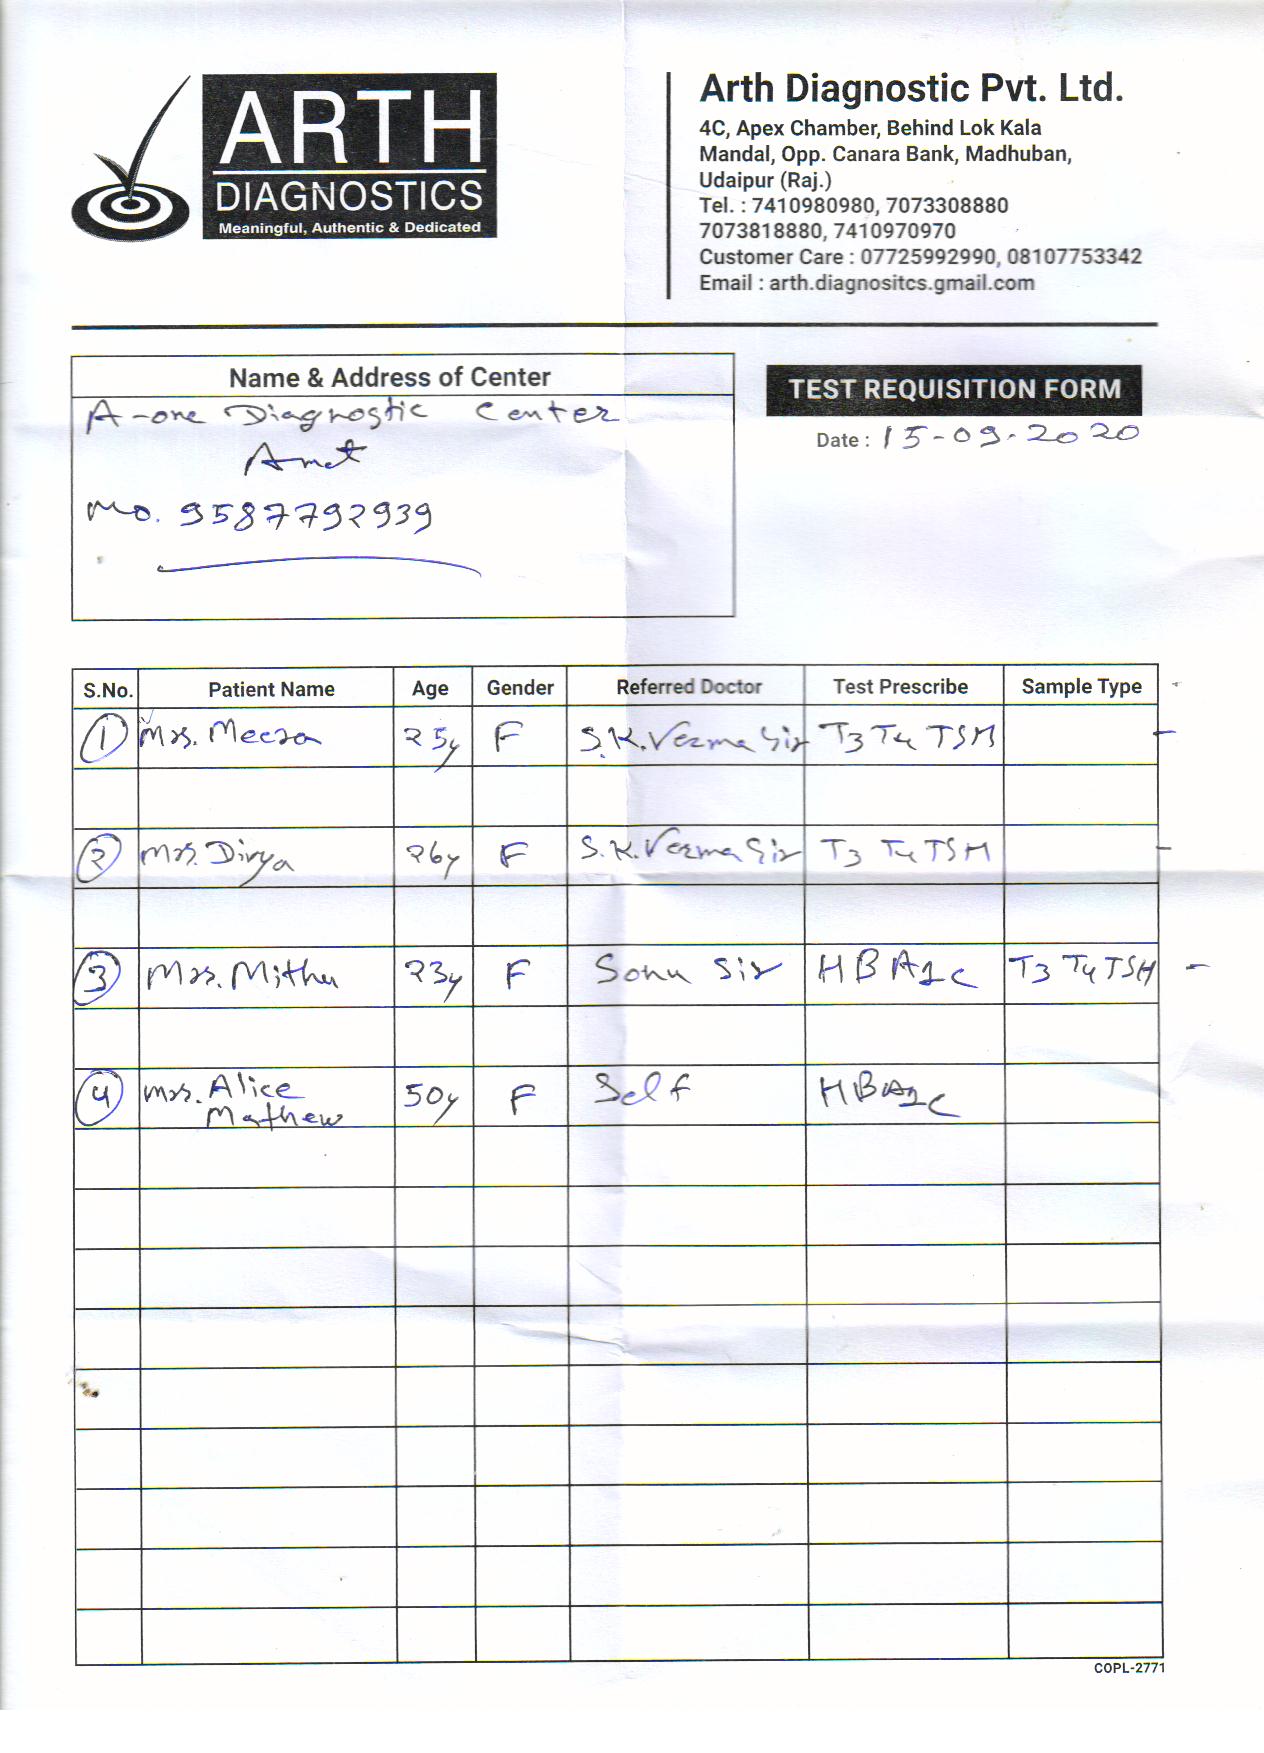 ARTH
DIAGNOSTICS
Meaningful, Authentic & Dedicated
Arth Diagnostic Pvt. Ltd.
4C, Apex Chamber, Behind Lok Kala
Mandal, Opp. Canara Bank, Madhuban,
Udaipur (Raj.)
Tel. : 7410980980, 7073308880
7073818880, 7410970970
Customer Care : 07725992990, 08107753342
Email : arth.diagnositcs.gmail.com
Name & Address of Center
A-one Diagnostic Center
Amet
Mo. 9587792939
TEST REQUISITION FORM
Date : 15-09-2020
S.No. Patient Name Age Gender Referred Doctor Test Prescribe Sample Type
1 Mrs. Meera 25y F S.K. Verma Sir T3 T4 TSH
2 Mrs. Divya 26y F S.K. Verma Sir T3 T4 TSH
3 Mrs. Mithu 23y F Sonu Sir HBA1C T3 T4 TSH
4 Mrs. Alice 50y F Self HBA1C
Mathew
COPL-2771